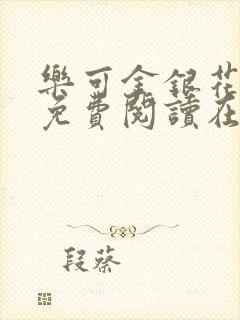 樂可金銀花
免費閱讀在
段蔡